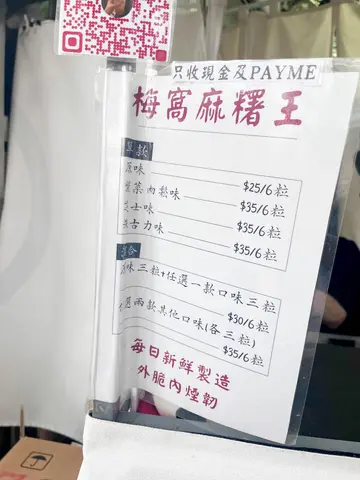 只收現金及PAYME
梅窩麻糬王
單款
原味 $25/6粒
紫菜肉鬆味 $35/6粒
芝士味 $35/6粒
朱古力味 $35/6粒
混合
原味三粒+任選一款口味三粒
$30/6粒
任選兩款其他口味(各三粒)
$35/6粒
每日新鮮製造
外脆內煙韌